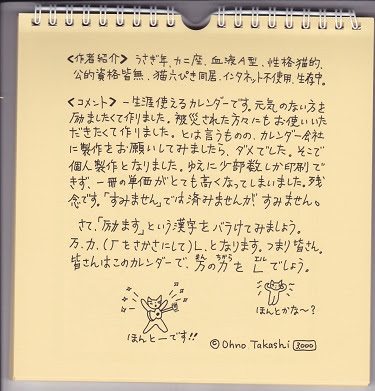 <作者紹介> うさぎ年、カニ座、血液A型、性格猫的、
公的資格皆無、猫六ぴき同居、インタネット不使用、生存中。
<コメント> 一生涯使えるカレンダーです。元気のない方を
励ましたくて作りました。被災された方々にもお使いいた
だきたくて作りました。とは言うものの、カレンダー会社
に製作をお願いしてみましたら、ダメでした。そこで
個人製作となりました。ゆえに少部数しか印刷で
きず、一冊の単価がとても高くなってしまいました。残
念です。「すみません」では済みませんが すみません。
さて、「励ます」という漢字をバラけてみましょう。
万、力、(「をさかさにして)L、となります。つまり皆さん。
皆さんはこのカレンダーで、万の力を L でしょう。
まん ちから エル
ほんとーです!!
ほんとかな〜?
© Ohno Takashi 3000